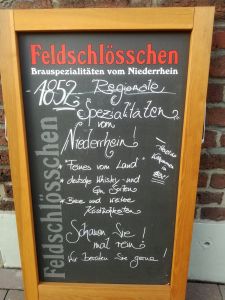 Feldschlösschen
Brauspezialitäten vom Niederrhein
1852 Regionale
Spezialitäten
vom
Niederrhein!
* Feines vom Land
* deutsche Whisky- und
Gin Sorten
* Biere und weitere
Köstlichkeiten
Schauen Sie
mal rein!
Wir beraten Sie gerne!
Feldschlösschen